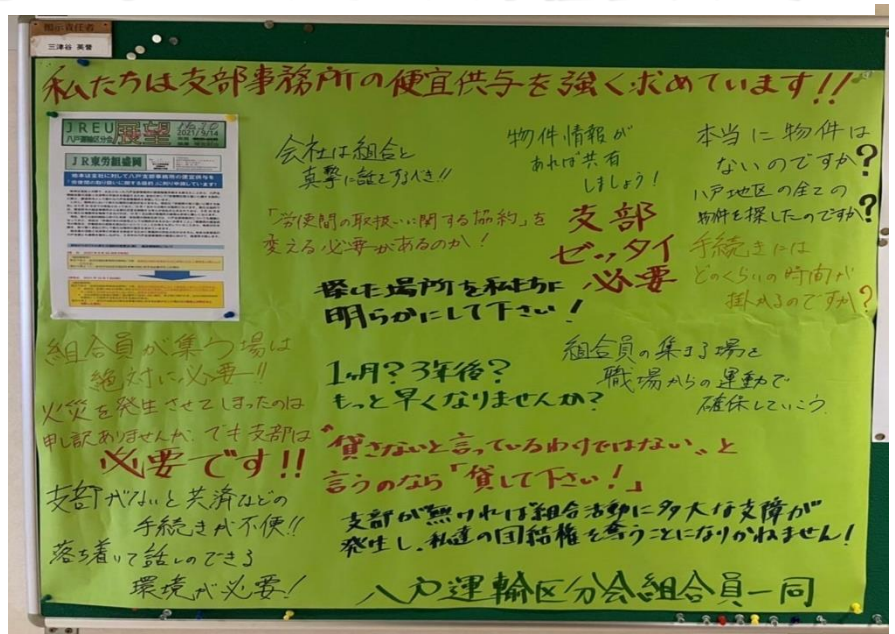 掲示責任者
三津谷 英誉
私たちは支部事務所の便宜供与を強く求めています!!
JREU
八戸運輸区分会
展望
2021/9/14
JR東労組盛岡
会社は組合と
真摯に話をするべき!!
「労使間の取扱いに関する協約」を
変える必要があるのか!
物件情報が
あれば共有
しましょう!
支部
ゼッタイ
必要
本当に物件は
ないのですか?
八戸地区の全ての
物件を探したのですか?
手続きには
どのくらいの時間が
掛かるのですか?
探した場所を私たちに
明らかにして下さい!
組合員が集う場は
絶対に必要!!
火災を発生させてしまったのは
申し訳ありませんが、でも支部は
必要です!!
1ヶ月?3年後?
もっと早くなりませんか?
組合員の集まる場を
職場からの運動で
確保していこう
"貸さないと言っているわけではない"と
言うのなら「貸して下さい!」
支部がないと共済などの
手続きが不便!!
落ち着いて話しのできる
環境が必要!
支部が無ければ組合活動に多大な支障が
発生し、私達の団結権を奪うことになりかねません!
八戸運輸区分会組合員一同